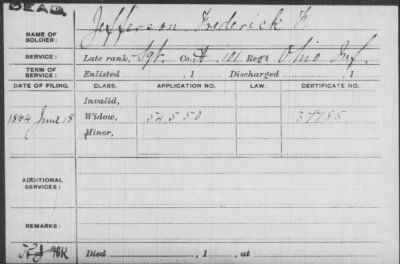 DEAD.
NAME OF SOLDIER: Jefferson Frederick F.
SERVICE: Late rank, Sgt. Co. A 101 Reg't Ohio Inf.
TERM OF SERVICE: Enlisted , 1 Discharged , 1
DATE OF FILING. CLASS. APPLICATION NO. LAW. CERTIFICATE NO.
Invalid,
1864 June 18 Widow, 54550 37785
Minor,
ADDITIONAL SERVICES:
REMARKS:
Died , 1 , at